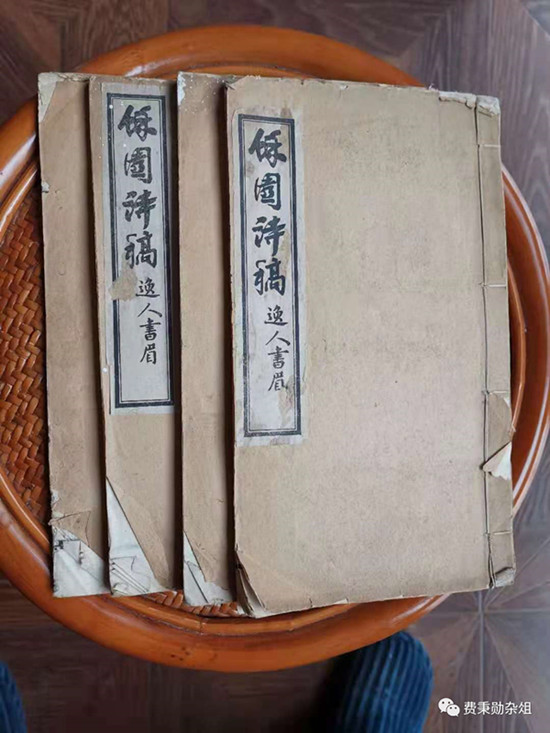 園詩稿
逸人書眉
園詩稿
逸人書眉
费秉勋杂俎